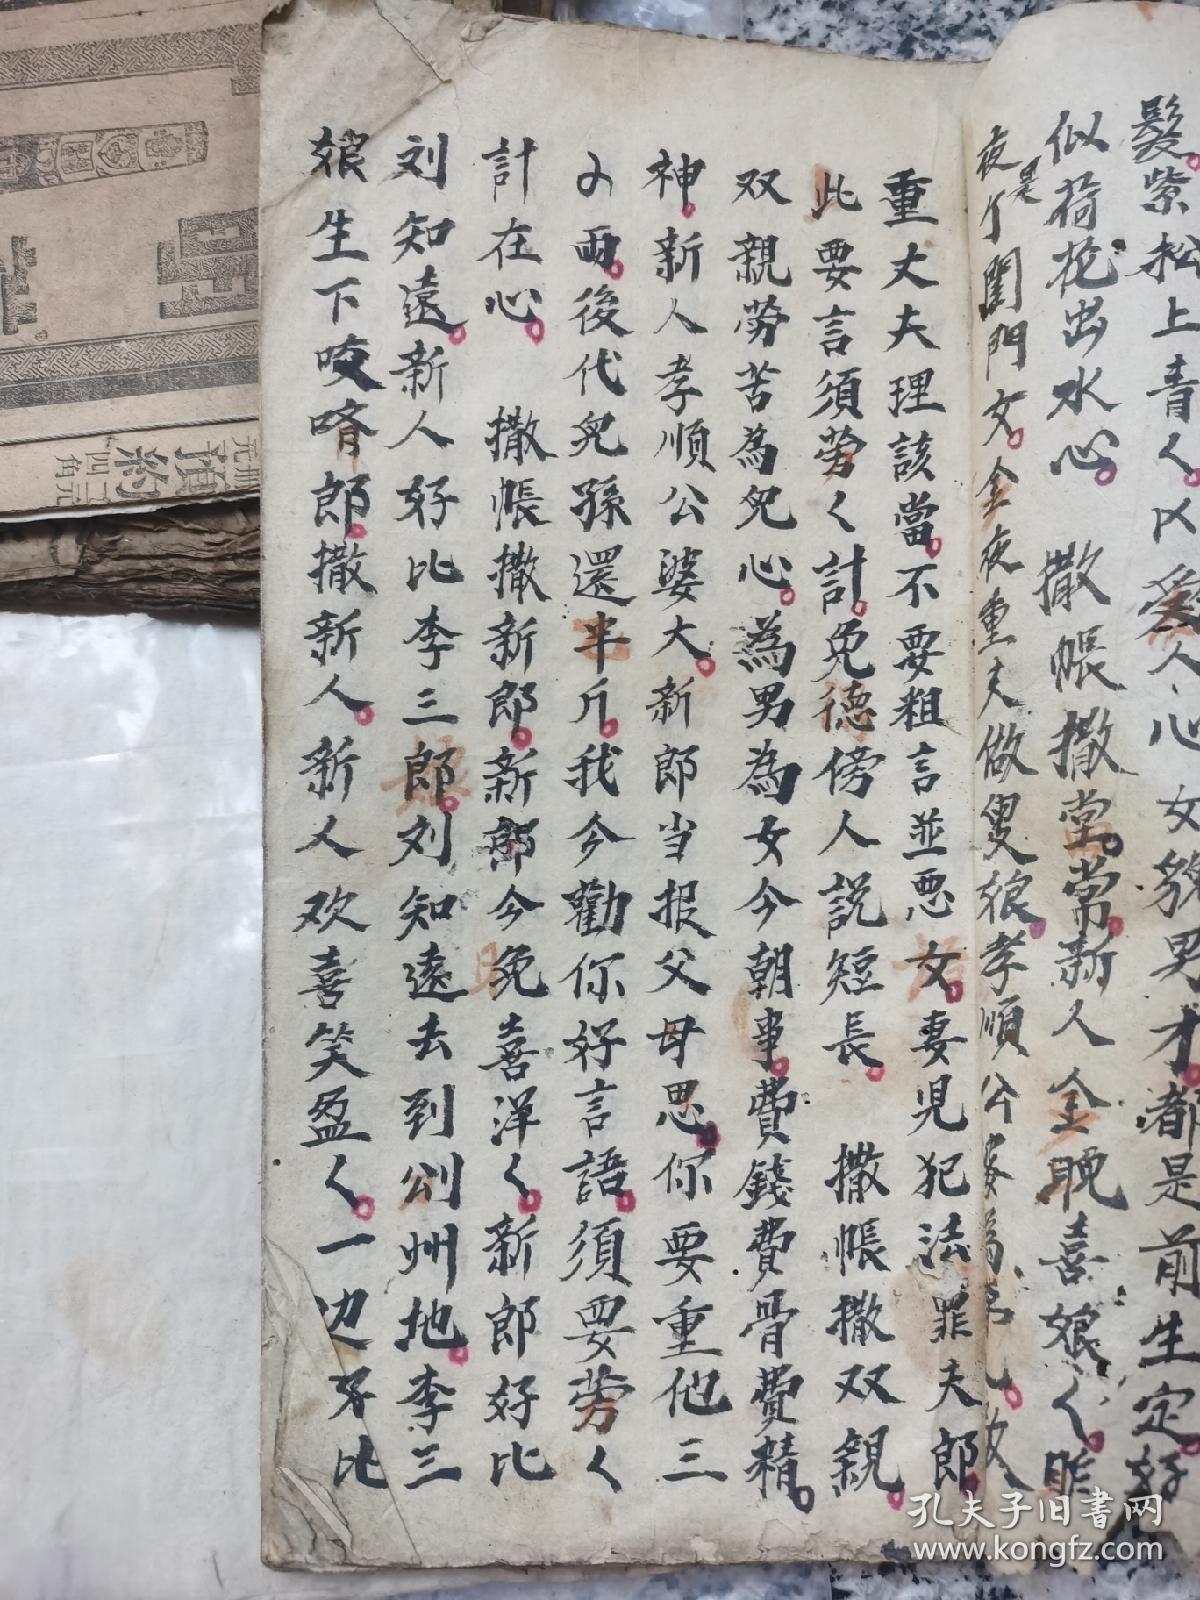 髮紫松上青く以爱人心女貌男才都是前生定好
似荷花出水心 撒帳撒堂常新人全晚喜娘く昨
夜是个閨門女全夜重夫做媳娘孝順公婆為
重丈夫理該當不要粗言並悪女妻児犯法罪夫郎
此要言須劳く計免德傍人説短長 撒帳撒双親
双親劳苦為児心為男為女今朝事費錢費骨費精
神新人孝順公婆大新郎当报父母思你要重他三
兩後代児孫還半斤我今勸你好言語須要劳く
計在心 撒帳撒新郎新郎今晚喜洋く新郎好比
刘知遠新人好比李三郎刘知遠去到州地李三
娘生下咬臍郎撒新人新人欢喜笑盈く一边好比
孔夫子旧书网
www.kongfz.com